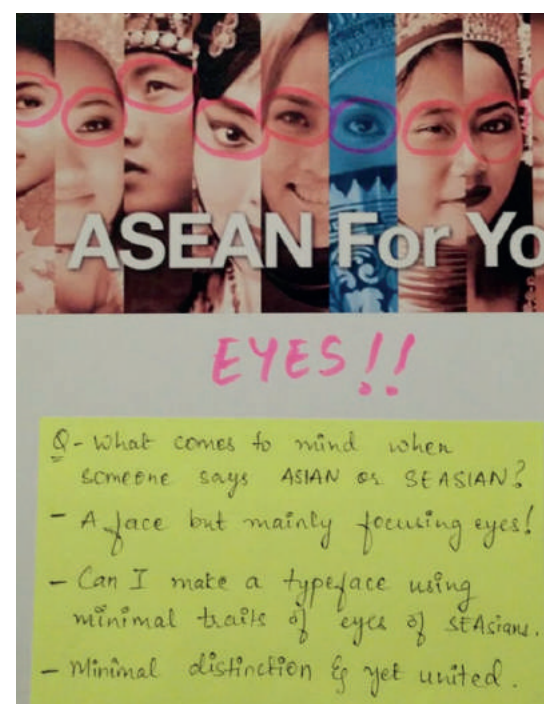 ASEAN For Yo
EYES!!
Q - What comes to mind when
someone says ASIAN or SEASIAN?
- A face but mainly focusing eyes!
- Can I make a typeface using
minimal traits of eyes of SEAsians.
- Minimal distinction & yet united.